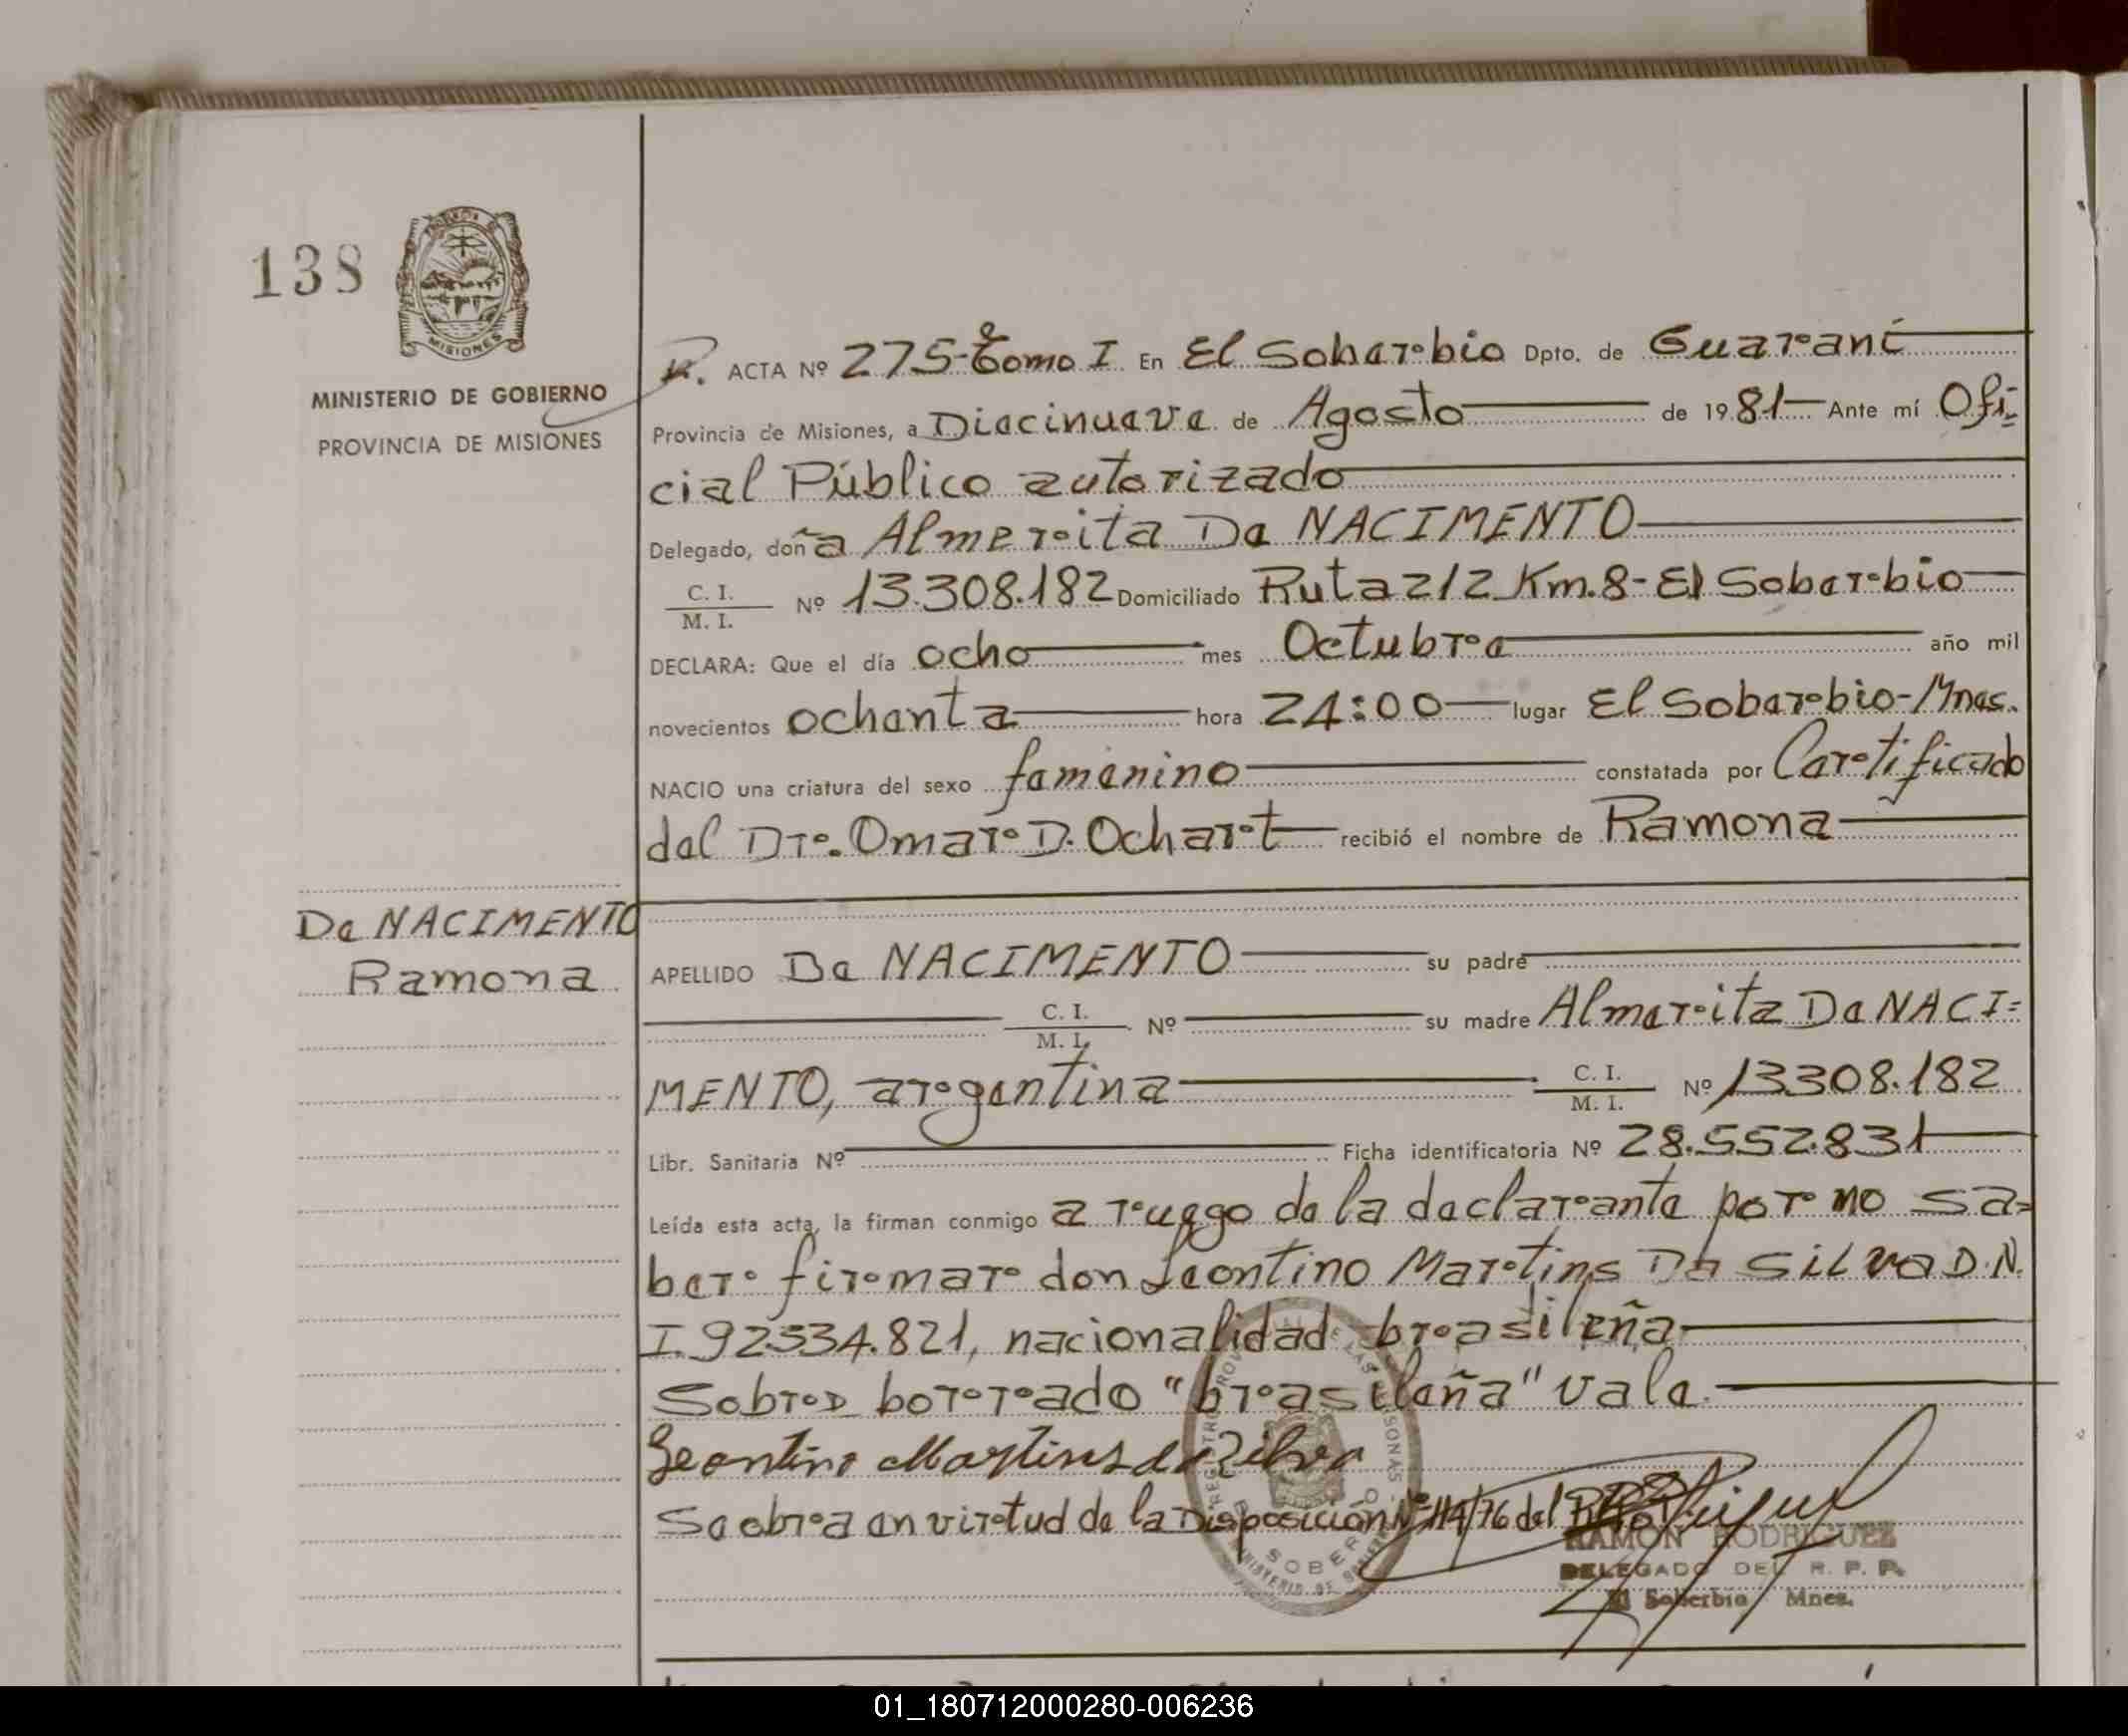 138
MISIONES
MINISTERIO DE GOBIERNO
PROVINCIA DE MISIONES
ACTA Nº 275-Tomo I En El Soberbio Dpto. de Guaraní
Provincia de Misiones, a Diecinueve de Agosto de 1981 Ante mí Ofi=
cial Público autorizado
Delegado, doña Almerita De NACIMENTO
C. I.
M. I. Nº 13.308.182 Domiciliado Ruta 212 Km.8-El Soberbio
DECLARA: Que el día ocho mes Octubre año mil
novecientos ochenta hora 24:00 lugar El Soberbio-Mnes.
NACIO una criatura del sexo femenino constatada por Certificado
del Dr. Omar D. Ochert recibió el nombre de Ramona
De NACIMENTO
Ramona
APELLIDO De NACIMENTO su padre
C. I.
M. I. Nº su madre Almerita De NACI=
MENTO, argentina C. I.
M. I. Nº 13308.182
Libr. Sanitaria Nº Ficha identificatoria Nº 28.552.831
Leída esta acta, la firman conmigo a ruego de la declarante por no sa=
ber firmar don Leontino Martins Da Silva D.N.
I. 92334.821, nacionalidad brasileña
Sobre borreado "brasileña" vale.
Leontino Martins da Silva
Se obra en virtud de la Disposición Nº 114/76 del
RAMON RODRIGUEZ
DELEGADO DEL R. P. P.
El Soberbio Mnes.
01_180712000280-006236